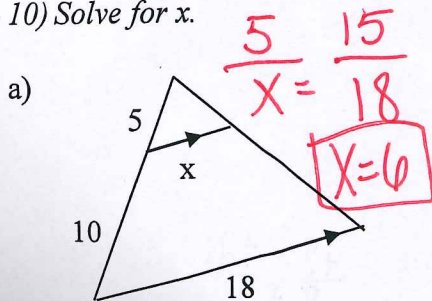 10) Solve for x.
a)
5/x = 15/18
x=6
5
x
10
18